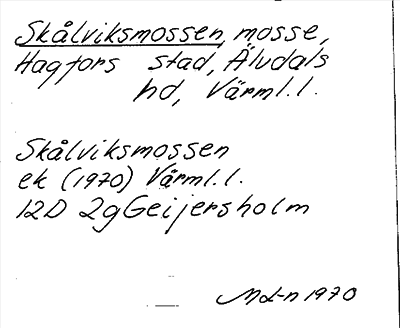 Skålviksmossen, mosse,
Hagfors stad, Älvdals
hd, Värml. l.
Skålviksmossen
ek (1970) Värml. l.
12D 2g Geijersholm
Md-n 1970